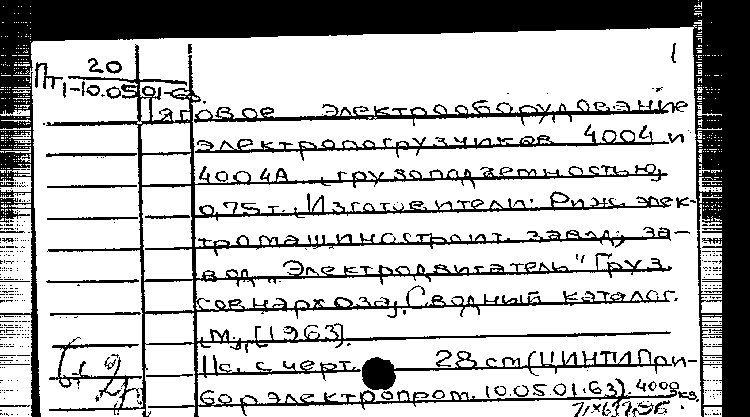 1
20
Пт1-10.05.01-63.
Тяговое электрооборудование
электропогрузчиков 4004 и
4004А, грузоподъемностью
0,75т. Изготовители: Риж. элек-
тромашиностроит. завод; за-
вод „Электродвигатель" Груз.
совнархоза, Сводный каталог.
М., [1963].
11с. с черт. 28 см (ЦИНТИПри-
борэлектропром. 10.05.01.63). 4000 экз.